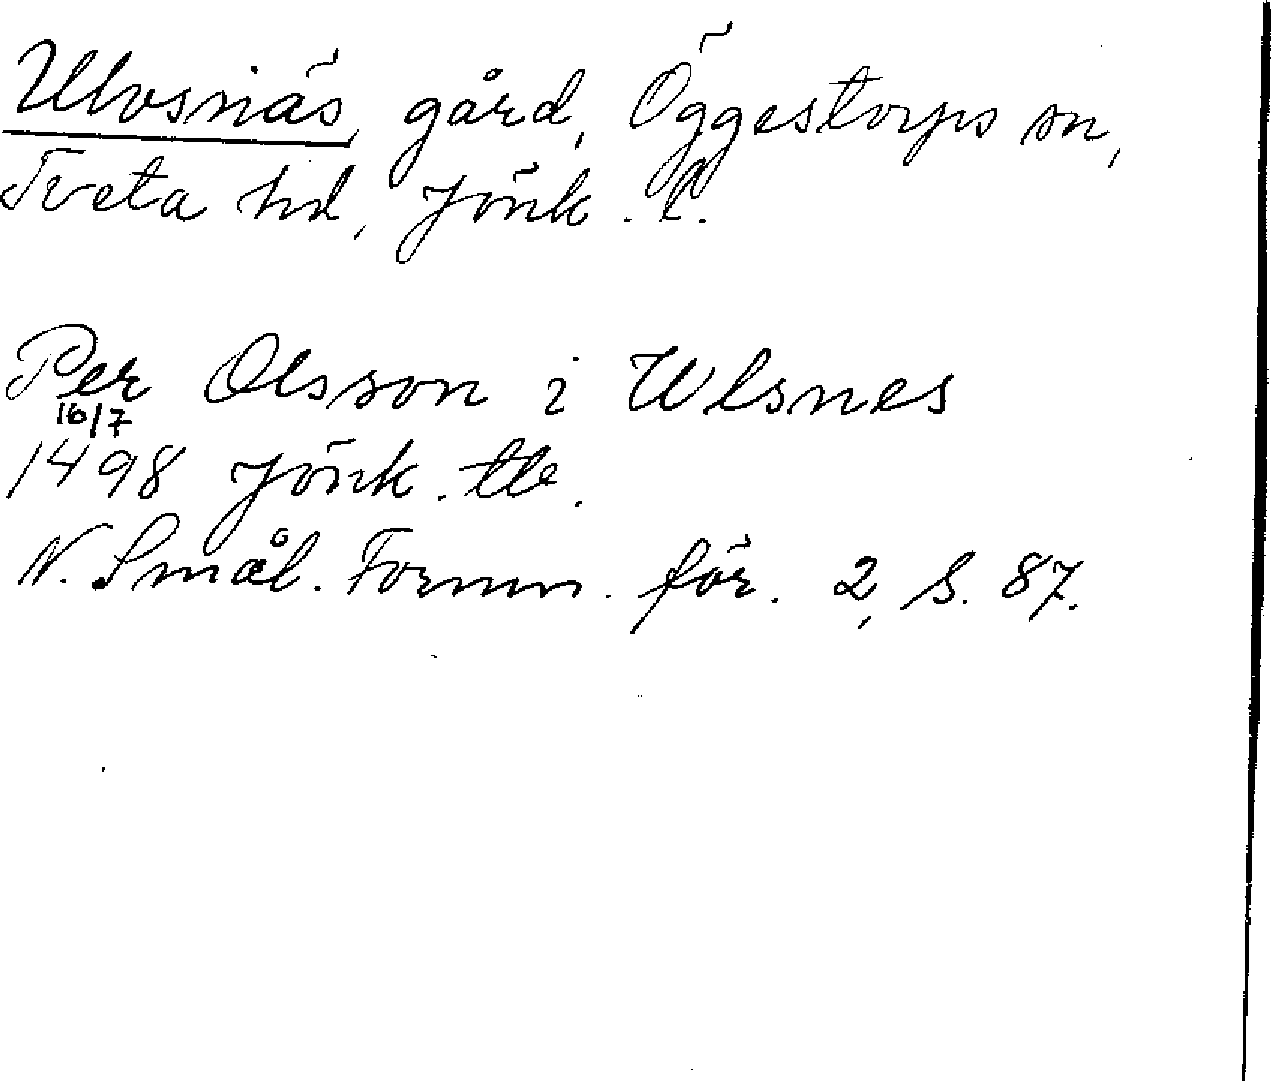 Ulvsnäs, gård, Öggestorps sn,
Tveta hd, Jönk. l.
Per Olsson i Wlsnes
16/7
1498 Jönk. tb.
N. Smål. Fornm. för. 2, s. 87.